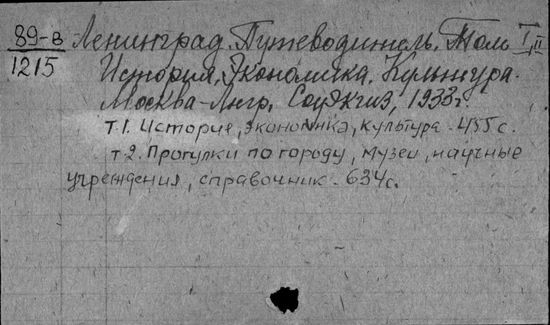 89-в
1215
Ленинград. Путеводитель. Том I, II
История, Экономика. Культура.
Москва-Лнгр, Соцэкгиз, 1933г.
т.1. История, экономика, культура. 455 с.
т 2. Прогулки по городу, музеи, научные
учреждения, справочник. 634с.